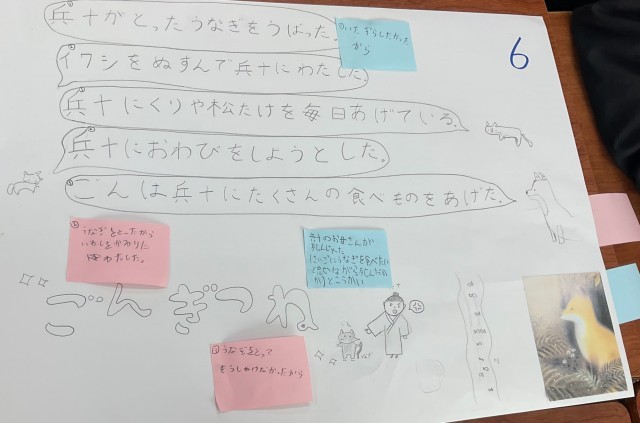 兵十がとったうなぎをうばった。
①いたずらしたかった
から
6
イワシをぬすんで兵十にわたした。
兵十にくりや松たけを毎日あげている。
兵十におわびをしようとした。
ごんは兵十にたくさんの食べものをあげた。
うなぎをとったから
いわしをかわりに
わたした。
兵十のお母さんが
死んじゃった
うなぎを食べたい
ごんぎつね。
うなぎをとって
もうしわけなかったから